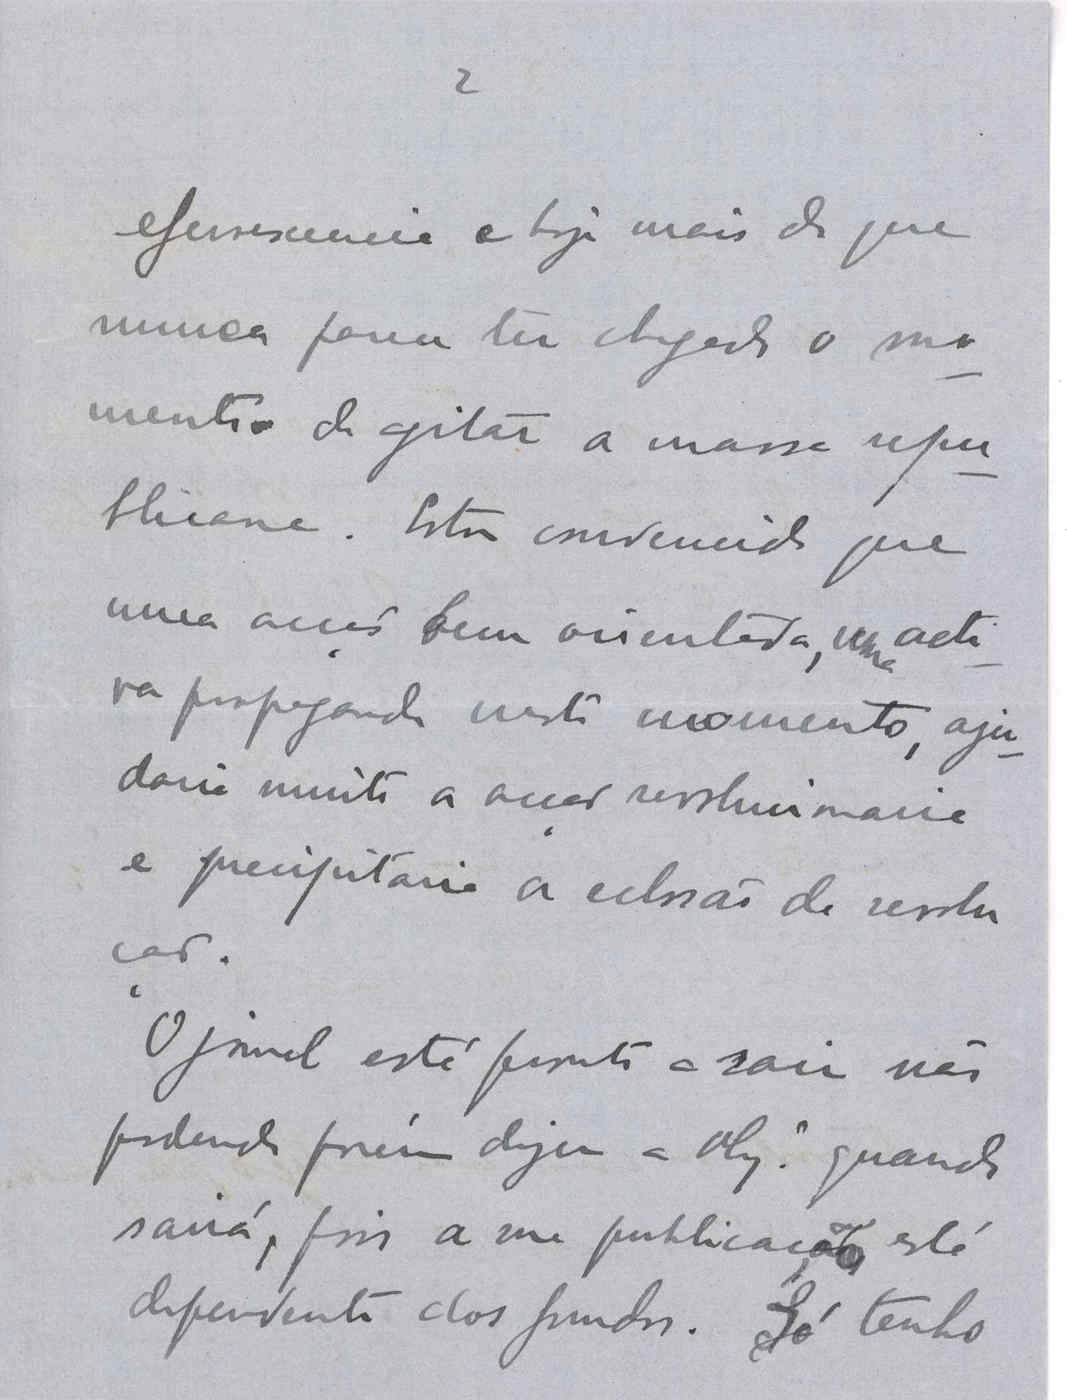 2
efervescencia e hoje mais do que
nunca parece ter chegado o mo-
mento de agitar a massa repu-
blicana. Estou convencido que
uma acção bem orientada, uma acti-
va propaganda neste momento, aju-
daria muito a acção revolucionaria
e precipitaria a eclosão da revolu
ção.
O jornal está pronto a sair não
podendo porém dizer a V. quando
sairá, pois a sua publicação está
dependente dos fundos. Só tenho